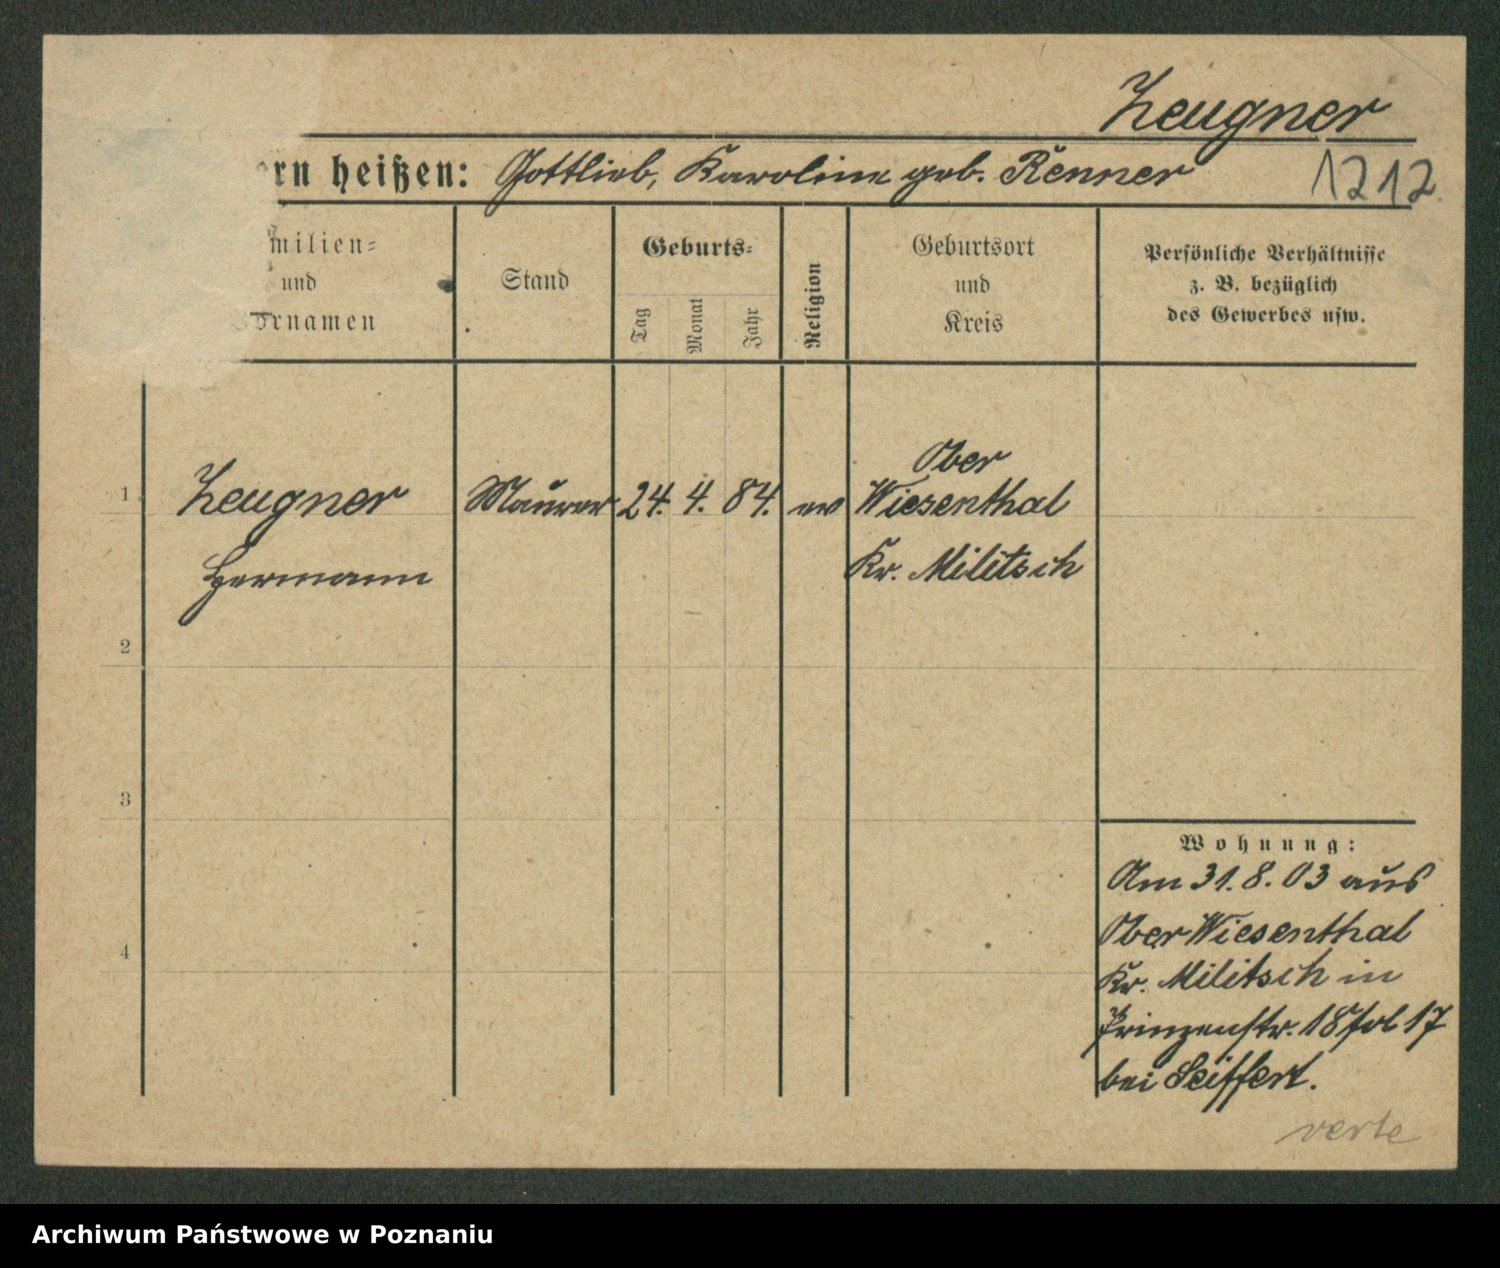 Zeugner
ern heißen: Gottlieb, Karoline geb. Renner
1212.
milien=
und
ornamen
Stand
Geburts=
Tag
Monat
Jahr
Religion
Geburtsort
und
Kreis
Persönliche Verhältnisse
z. B. bezüglich
des Gewerbes usw.
Ober
1 Zeugner Maurer 24. 4. 84. ev Wiesenthal
Hermann Kr. Militsch
2
3
Wohnung:
Am 31.8.03 aus
Ober Wiesenthal
4
Kr. Militsch in
Prinzenstr. 18 17
bei Seiffert.
verte
Archiwum Państwowe w Poznaniu